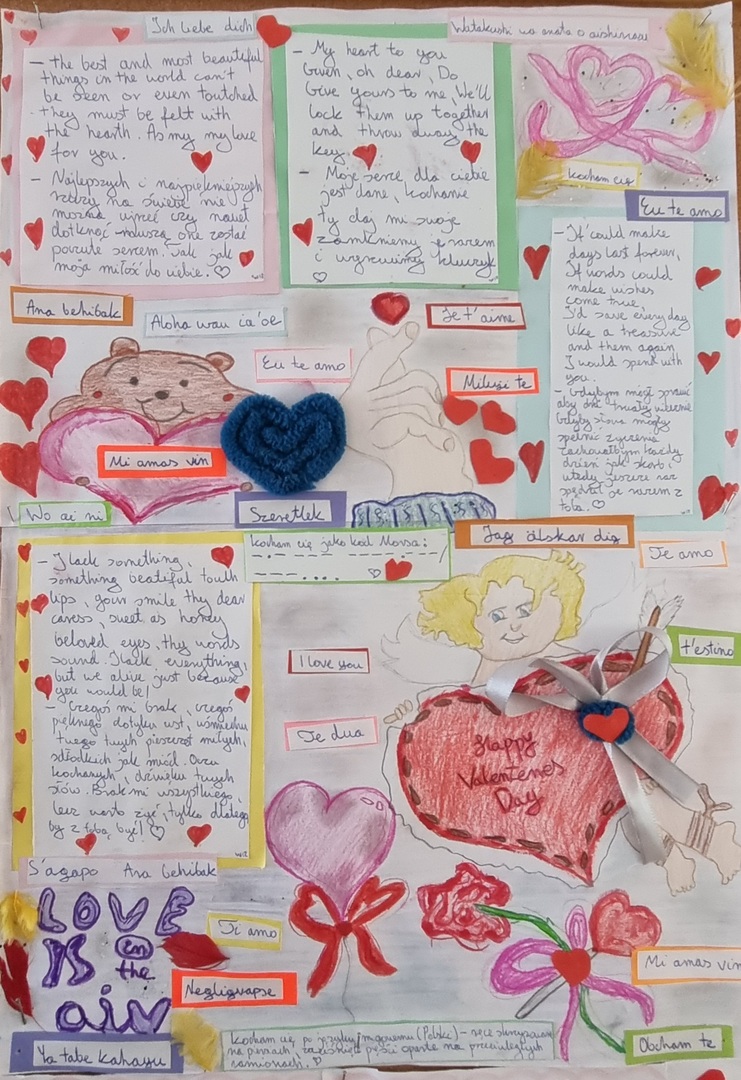 Ich liebe dich
Watakushi wa anata o aishimasu
- the best and most beautiful
things in the world can't
be seen or even toutched
they must be felt with
the hearth. As my my love
for you.
- Najlepszych i najpiękniejszych
rzeczy na świecie nie
można ujrzeć czy nawet
dotknąć muszą one zostać
poczute sercem. Tak jak
moja miłość do ciebie.
- My heart to you
Given, oh dear, Do
Give yours to me, We'll
lock them up together
and throw away the
key.
- Moje serce dla ciebie
jest dane, kochanie
ty daj mi swoje
zamkniemy je razem
i wyrzucimy kluczyk
kocham cię
Eu te amo
- If could make
days last forever,
If words could
make wishes
come true,
I'd save everyday
like a treasure
and them again
I would spend with
you.
- Gdybym mógł sprawić
aby dni trwały wiecznie
Gdyby słowa mogły
spełnić życzenia
zachowałbym każdy
dzień jak skarb i
wtedy jeszcze raz
spędził je razem z
tobą.
Ana behibak
Aloha wau ia'oe
Je t'aime
Eu te amo
Miluji te
Mi amas vin
Wo ai ni
Szeretlek
Jag älskar dig
kocham cię jako kod Morsa:
Te amo
- I lack something,
something beatiful touch
lips, your smile thy dear
caress, sweet as honey
beloved eyes, thy words
sound. I lack everything,
but we alive just because
you would be!
- Czegoś mi brak, czegoś
pięknego dotyku ust, uśmiechu
twego twych pieszczot miłych,
słodkich jak miód. Oczu
kochanych, dźwięku twych
słów. Brak mi wszystkiego,
lecz warto żyć, tylko dlatego
by z tobą być!
I love you
t'estimo
Te dua
Happy
Valentenes
Day
S'agapo Ana behibak
LOVE
IS in
the
air
Ti amo
Negligevapse
Mi amas vin
Ya tabe kahayu
Kocham cię po języku migowemu (Polski) - ręce skrzyżowane
na piersiach, zaciśnięte pięści oparte na przeciwległych
ramionach.
Obcham te